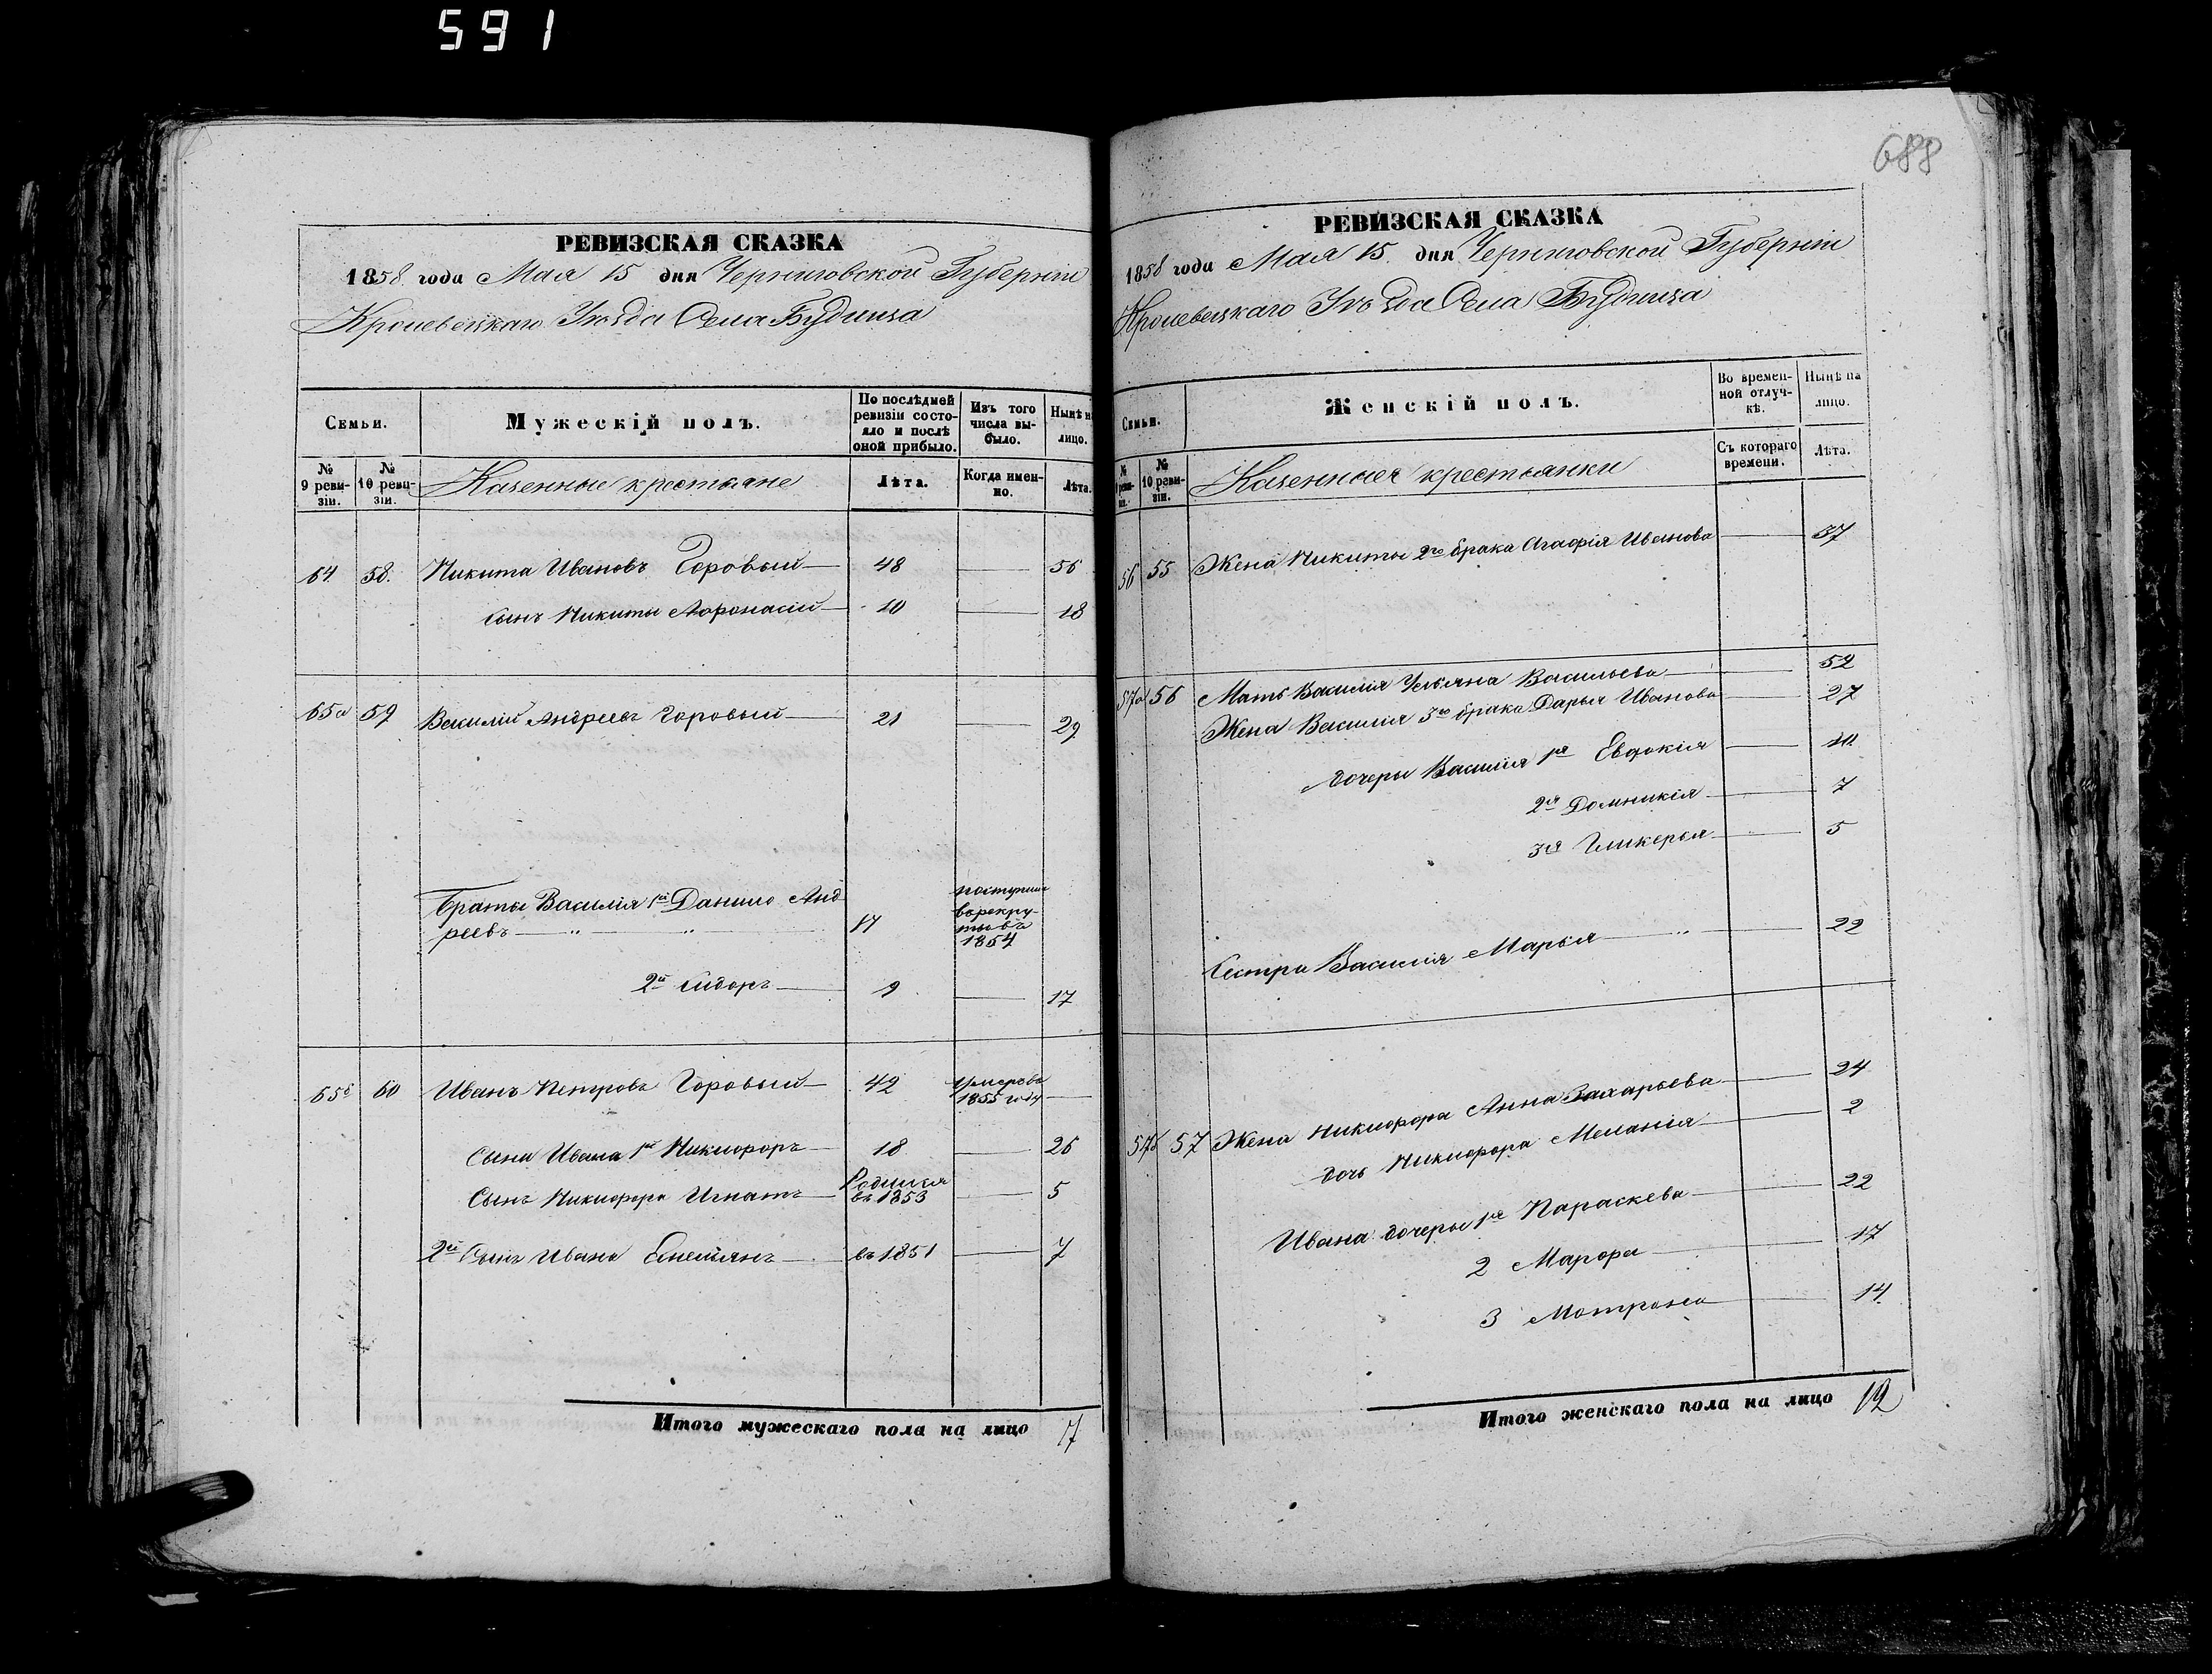 591
688
РЕВИЗСКАЯ СКАЗКА
1858 года Мая 15 дня Черниговской Губерніи
Кролевецкаго Уѣзда Села Будища
Семьи.
Мужескій полъ.
По послѣдней ревизіи состояло и послѣ оной прибыло.
Изъ того числа выбыло.
Нынѣ на лицо.
№ 9 ревизіи.
№ 10 ревизіи.
Казенные крестьяне
Лѣта.
Когда именно.
Лѣта.
64 58. Никита Ивановъ Горовый 48 56
сынъ Никиты Афонасій 10 18
65а 59 Василій Андреевъ Горовый 21 29
Браты Василія 1й Данило Анд
реевъ 17 поступилъ в рекруты въ 1854
2й Сидоръ 9 17
65б 60 Иванъ Петровъ Горовый 42 умеръ въ 1855 году
Сыны Ивана 1й Никифоръ 18 26
Сынъ Никифора Игнатъ Родился въ 1853 5
2й Сынъ Ивана въ 1851 7
Итого мужескаго пола на лицо 7
РЕВИЗСКАЯ СКАЗКА
1858 года Мая 15 дня Черниговской Губерніи
Кролевецкаго Уѣзда Села Будища
Семьи.
Женскій полъ.
Во временной отлучкѣ.
Нынѣ на лицо.
№ 9 ревизіи.
№ 10 ревизіи.
Казенныя крестьянки
Съ котораго времени.
Лѣта.
56 55 Жена Никиты 2го брака Агафія Иванова 37
57а 56 Мать Василія Ульяна Васильева 52
Жена Василія 3го брака Дарья Иванова 27
дочеры Василія 1я Евдокія 10
2я Домникія 7
3я Гликерья 5
Сестра Василія Марья 22
57б 57 Жена Никифора Анна Захарьева 24
дочь Никифора Меланія 2
Ивана дочеры 1я Параскева 22
2 Марфа 17
3 Мотрона 14
Итого женскаго пола на лицо 12